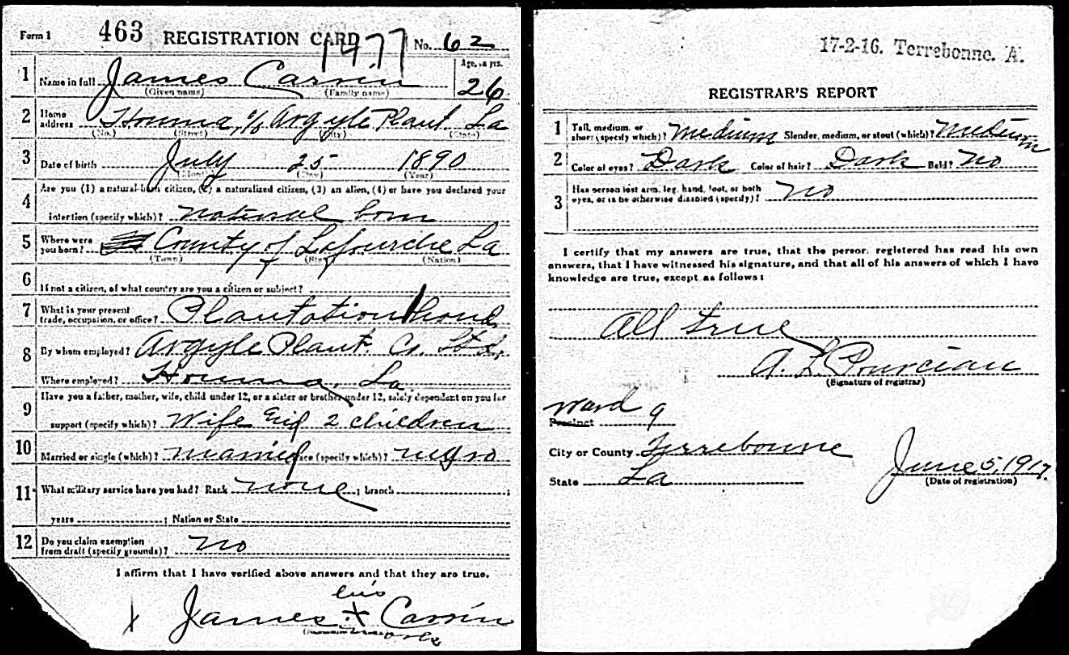 Form 1 463 REGISTRATION CARD 1477 No. 62
1 Name in full James Carvin Age, in yrs. 26
(Given name) (Family name)
2 Home address Houma, c/o Argyle Plant. La
(No.) (Street) (City) (State)
3 Date of birth July 25 1890
(Month) (Day) (Year)
4 Are you (1) a natural-born citizen, (2) a naturalized citizen, (3) an alien, (4) or have you declared your
intention (specify which)? natural born
5 Where were you born? County of Lafourche La
(Town) (State) (Nation)
6 If not a citizen, of what country are you a citizen or subject?
7 What is your present trade, occupation, or office? Plantation hand
8 By whom employed? Argyle Plant. Co. Ltd.
Where employed? Houma, La
9 Have you a father, mother, wife, child under 12, or a sister or brother under 12, solely dependent on you for
support (specify which)? Wife and 2 children
10 Married or single (which)? married Race (specify which)? negro
11 What military service have you had? Rank none ; branch ;
years ; Nation or State
12 Do you claim exemption from draft (specify grounds)? No
I affirm that I have verified above answers and that they are true.
his
X James X Carvin
mark
17-2-16. Terrebonne. A.
REGISTRAR'S REPORT
1 Tall, medium, or short (specify which)? Medium Slender, medium, or stout (which)? Medium
2 Color of eyes? Dark Color of hair? Dark Bald? No
3 Has person lost arm, leg, hand, foot, or both eyes, or is he otherwise disabled (specify)? No
I certify that my answers are true, that the person registered has read his own
answers, that I have witnessed his signature, and that all of his answers of which I have
knowledge are true, except as follows:
All true
A. L. Pourciau
(Signature of registrar)
Ward 9
Precinct
City or County Terrebonne
State La
June 5, 1917.
(Date of registration)